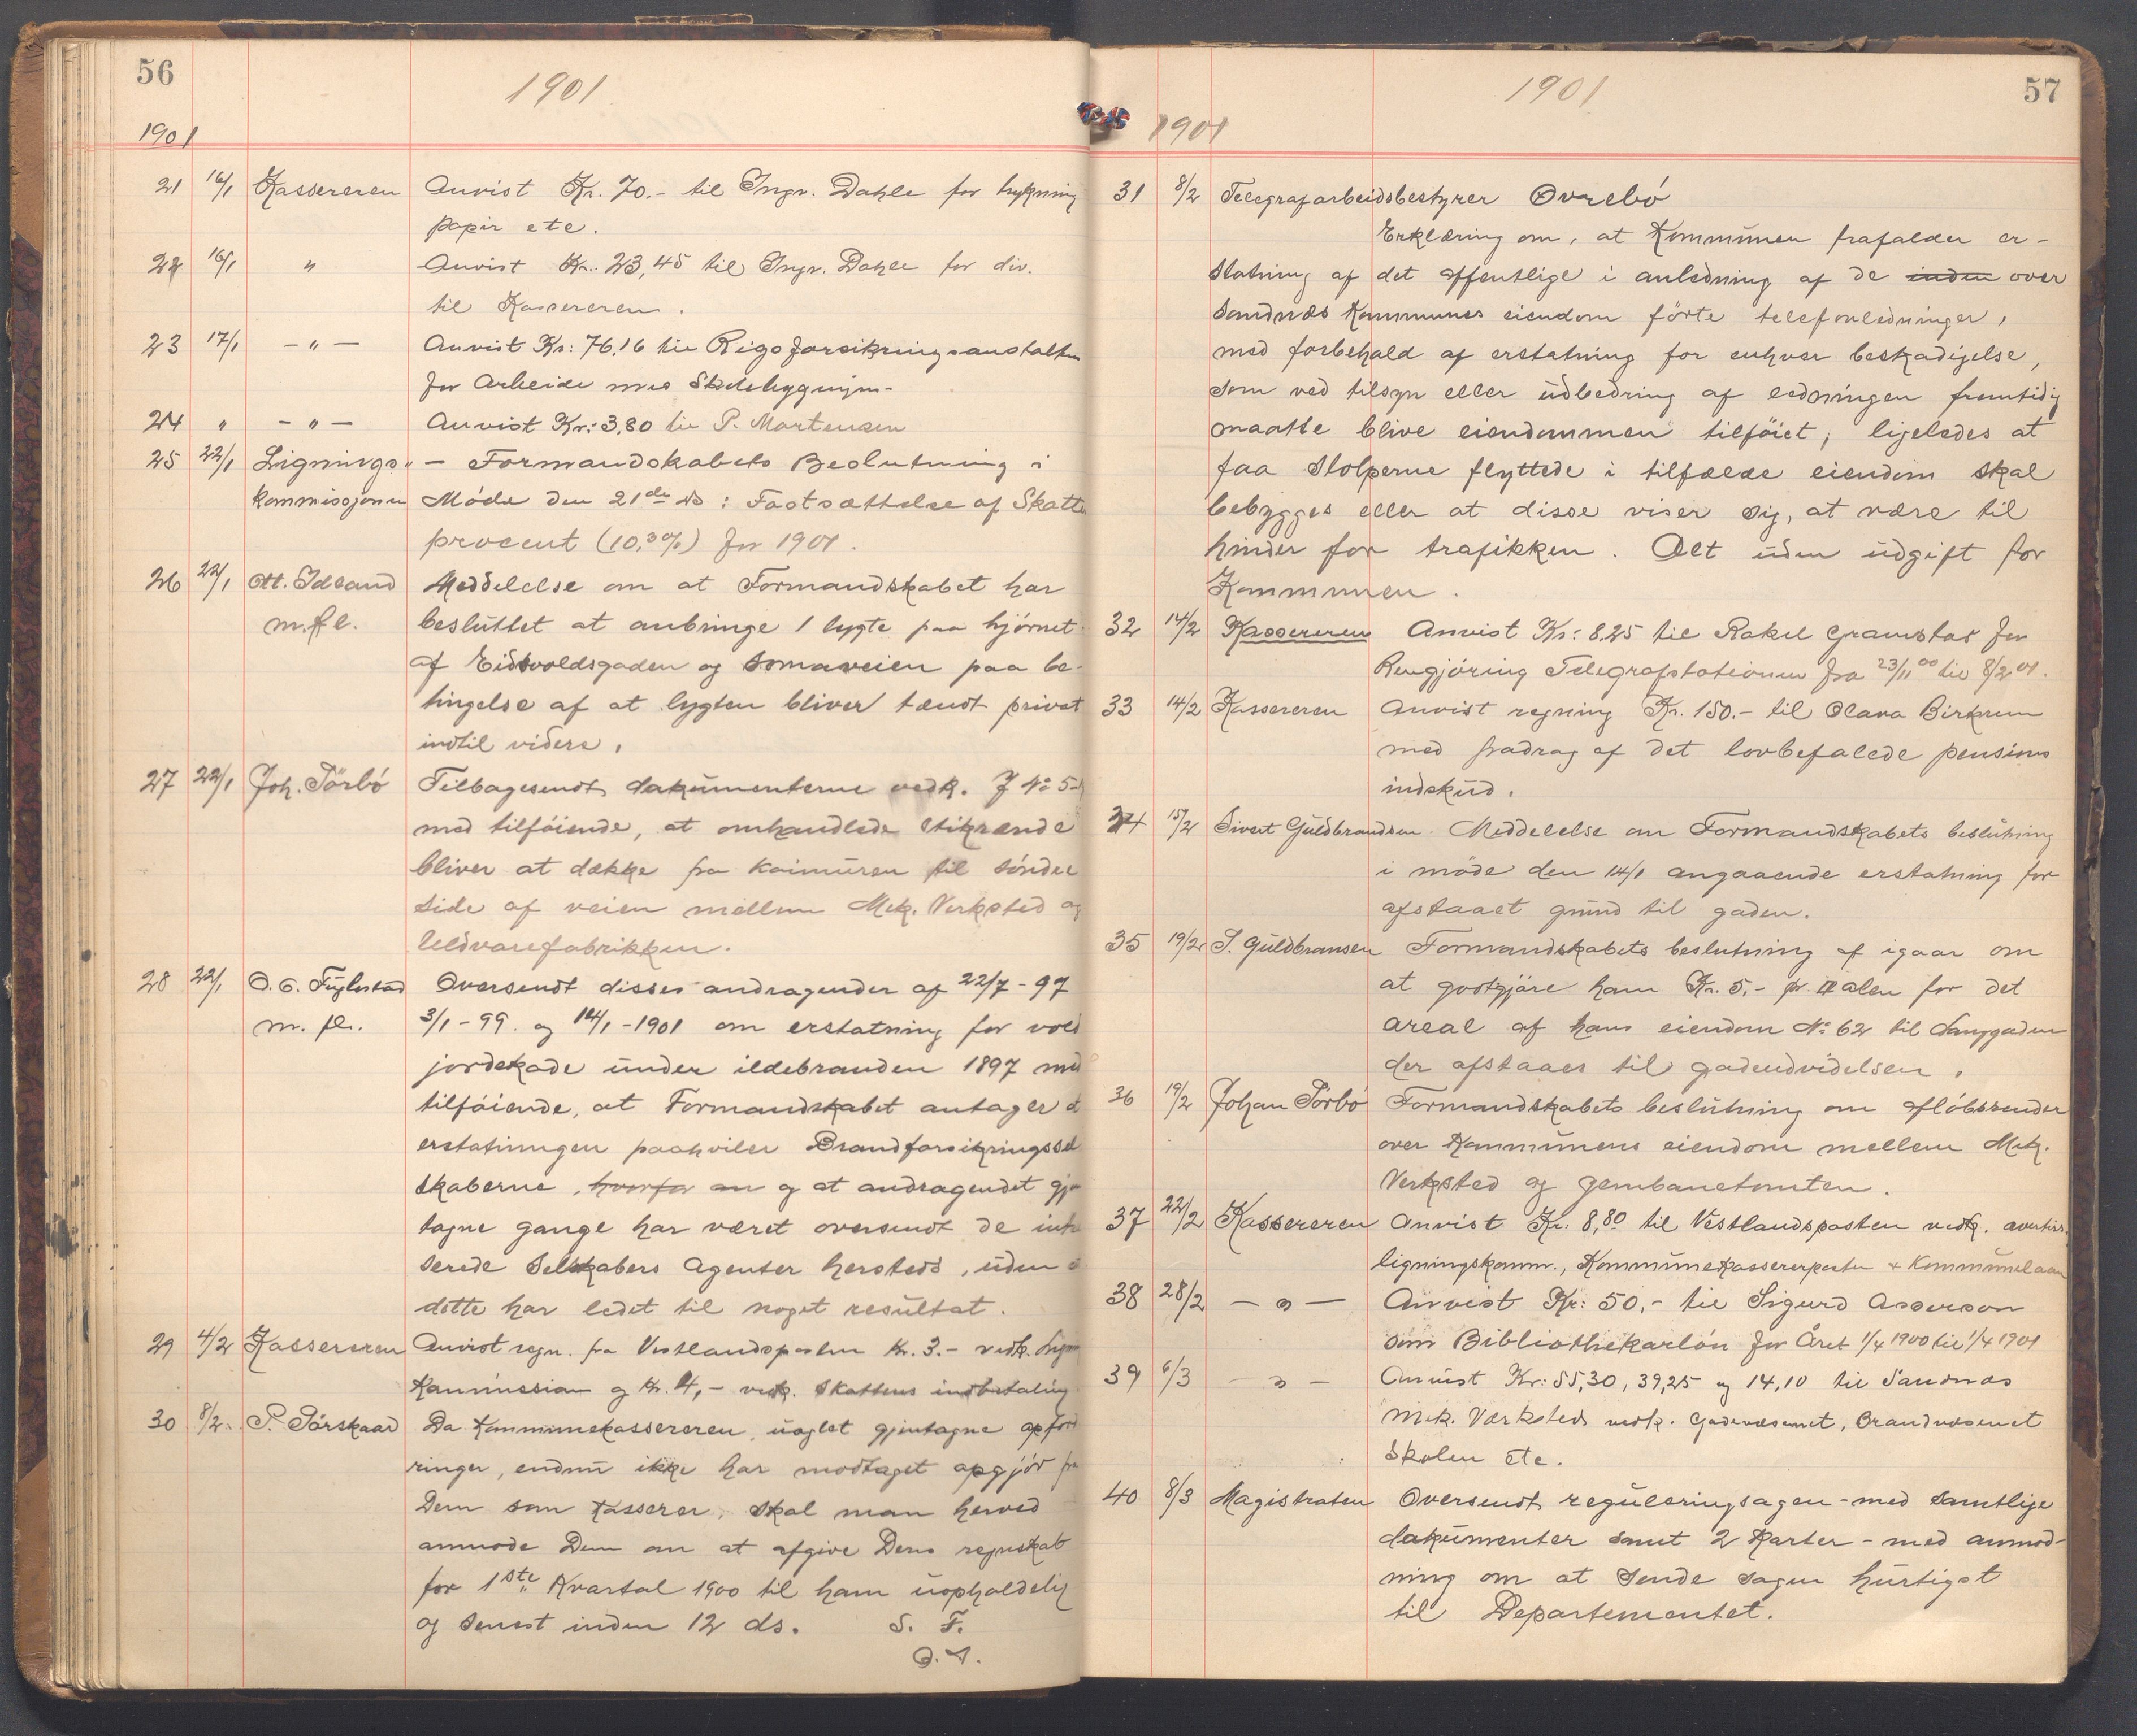 56
1901
1901
21 16/1 Kassereren Anvist Kr. 70.- til Ingv. Dahle for trykning
papir etc.
22 16/1 " Anvist Kr. 23,45 til Ingv. Dahle for div.
til Kassereren.
23 17/1 - " - Anvist Kr: 76,16 til Rigsforsikringsanstalten
for Arbeide med
24 " - " - Anvist Kr: 3,80 til P. Mortensen
25 22/1 Lignings- - Formandskabets Beslutning i
kommissjonen Møde den 21de ds: Fastsættelse af Skatte
procent (10,3%) for 1901.
26 22/1 Ott. Idsand Meddelelse om at Formandskabet har
m. fl. besluttet at anbringe 1 lygte paa hjørnet
af Eidsvoldsgaden og Somaveien paa be-
tingelse af at lygten bliver tændt privat
indtil videre.
27 22/1 Joh. Tørbø Tilbagesendt dokumenterne vedk. J No 5
med tilføiende, at omhandlede stikrende
bliver at dække fra kaimuren til søndre
side af veien mellem Mek. Verksted og
Uldvarefabrikken.
28 22/1 O. G. Fuglestad Oversendt disses andragender af 22/7-97
m. fl. 3/1-99. og 14/1-1901 om erstatning for vold
jordskade under ildebranden 1897 med
tilføiende, at Formandskabet antager
erstatningen paahviler Brandforsikringssel
skaberne, hvorfor an og at andragendet gjen
tagne gange har været oversendt de inte
serede Selskabers Agenter hersteds, uden
dette har ledet til noget resultat.
29 4/2 Kassereren Anvist regn. fra Vestlandsposten Kr. 3.- vedk. Lign
Kommission og Kr. 4,- vedk. Skattens indbetaling
30 8/2 P. Pørskaad Da Kommunekassereren, uagtet gjentagne opford
ringer, endnu ikke har modtaget opgjør fra
Dem som Kasserer, skal man herved
anmode Dem om at afgive Deres regnskab
for 1ste Kvartal 1900 til ham uopholdelig
og senest inden 12 ds. S. F.
57
1901
1901
31 8/2 Telegrafarbeidsbestyrer Øvrebø
Erklæring om, at Kommunen frafalder er-
statning af det offentlige i anledning af de inden over
Sandnæs Kommunes eiendom førte telefonledninger,
med forbehold af erstatning for enhver beskadigelse,
som ved tilsyn eller udbedring af ledningen fremtidig
maatte blive eiendommen tilføiet; ligeledes at
faa stolperne flyttede i tilfælde eiendom skal
bebygges eller at disse viser sig, at være til
hinder for trafikken. Alt uden udgift for
Kommunen.
32 14/2 Kassereren Anvist Kr: 8,25 til Rakel Gramstad for
Rengjøring Telegrafstationen fra 23/11 00 til 8/2 01.
33 14/2 Kassereren Anvist regning Kr. 150.- til Olava Birkrem
med fradrag af det lovbefalede pensions
indskud.
34 15/2 Sivert Guldbrandsen Meddelelse om Formandskabets beslutning
i møde den 14/1 angaaende erstatning for
afstaaet grund til gaden.
35 19/2 S. Guldbransen Formandskabets beslutning af igaar om
at godtgjøre ham Kr. 5.- pr. □ alen for det
areal af hans eiendom No 62 til Langgaden
der afstaaes til gadeudvidelsen.
36 19/2 Johan Tørbø Formandskabets beslutning om afløbsrender
over Kommunens eiendom mellem Mek.
Verksted og Jernbanetomten.
37 22/2 Kassereren Anvist Kr. 8,80 til Vestlandsposten vedk. avertis.
ligningskomm., Kommunekassererposten + Kommunelaan
38 28/2 - " - Anvist Kr: 50,- til Sigurd Asserson
som Bibliothekarløn for Året 1/4 1900 til 1/4 1901
39 6/3 - " - Anvist Kr: 55,30, 39,25 og 14,10 til Sandnæs
Mek. Værksted vedk. Gadevæsenet, Brandvæsenet
Skolen etc.
40 8/3 Magistraten Oversendt reguleringsagen - med samtlige
dokumenter samt 2 Karter - med anmod-
ning om at sende sagen hurtigst
til Departementet.